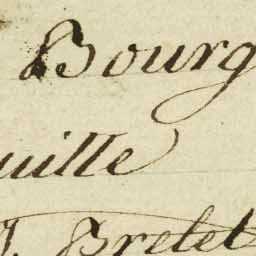 Bourg
uille
J. Bretet